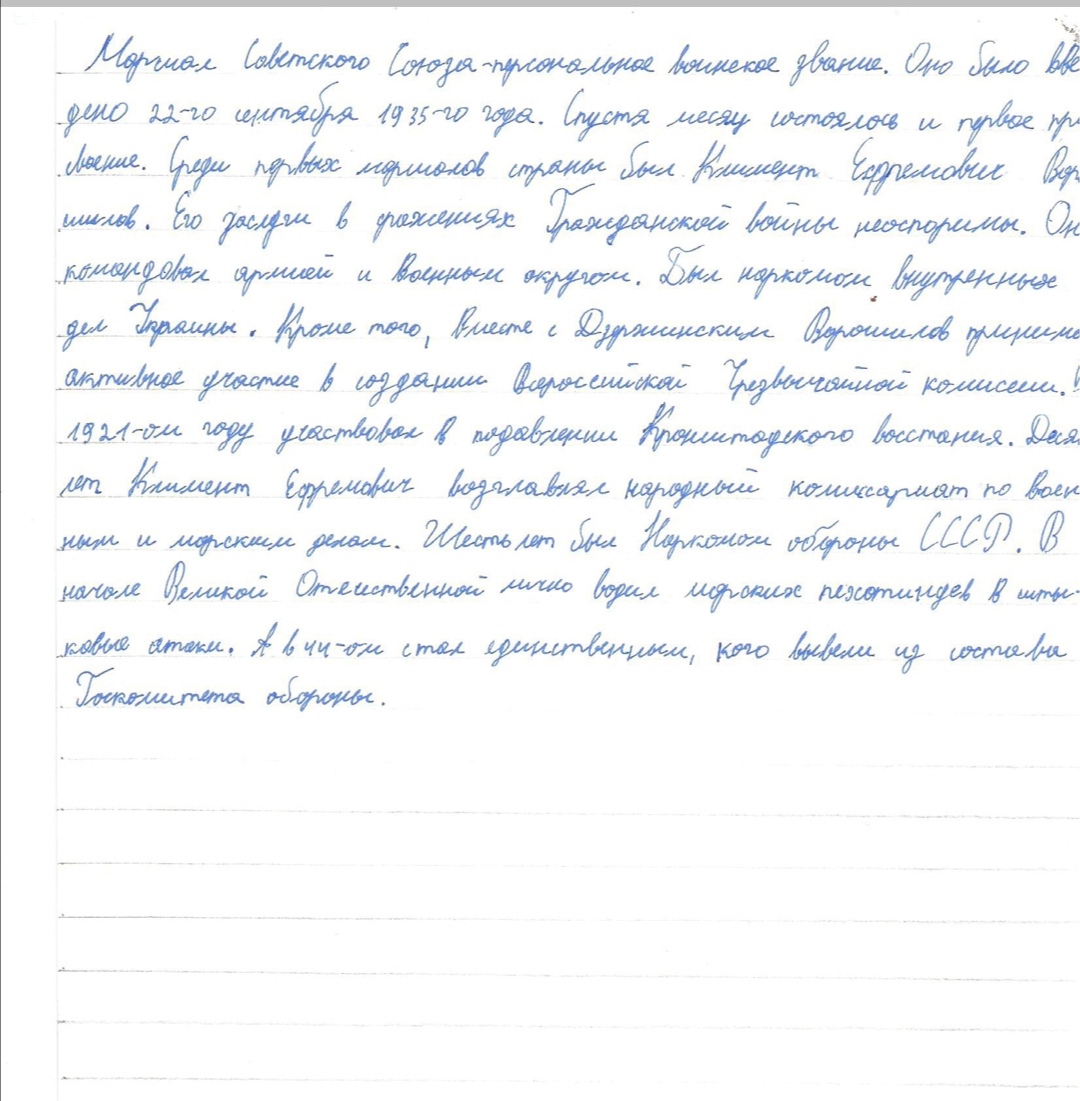 Маршал Советского Союза-персональное воинское звание. Оно было вве
дено 22-го сентября 1935-го года. Спустя месяц состоялось и первое при
своение. Среди первых маршалов страны был Климент Ефремович Вор
шилов. Его заслуги в сражениях Гражданской войны неоспоримы. Он
командовал армией и военным округом. Был наркомом внутренных
дел Украины. Кроме того, вместе с Дзержинским Ворошилов принима
активное участие в создании Всероссийской Чрезвычайной комиссии. В
1921-ом году участвовал в подавлении Кронштадского восстания. Деся
лет Климент Ефремович возглавлял народный комиссариат по воен
ным и морским делам. Шесть лет был Наркомом обороны СССР. В
начале Великой Отечественной лично водил морских пехотинцев в шты-
ковые атаки. А в 44-ом стал единственным, кого вывели из состава
Госкомитета обороны.